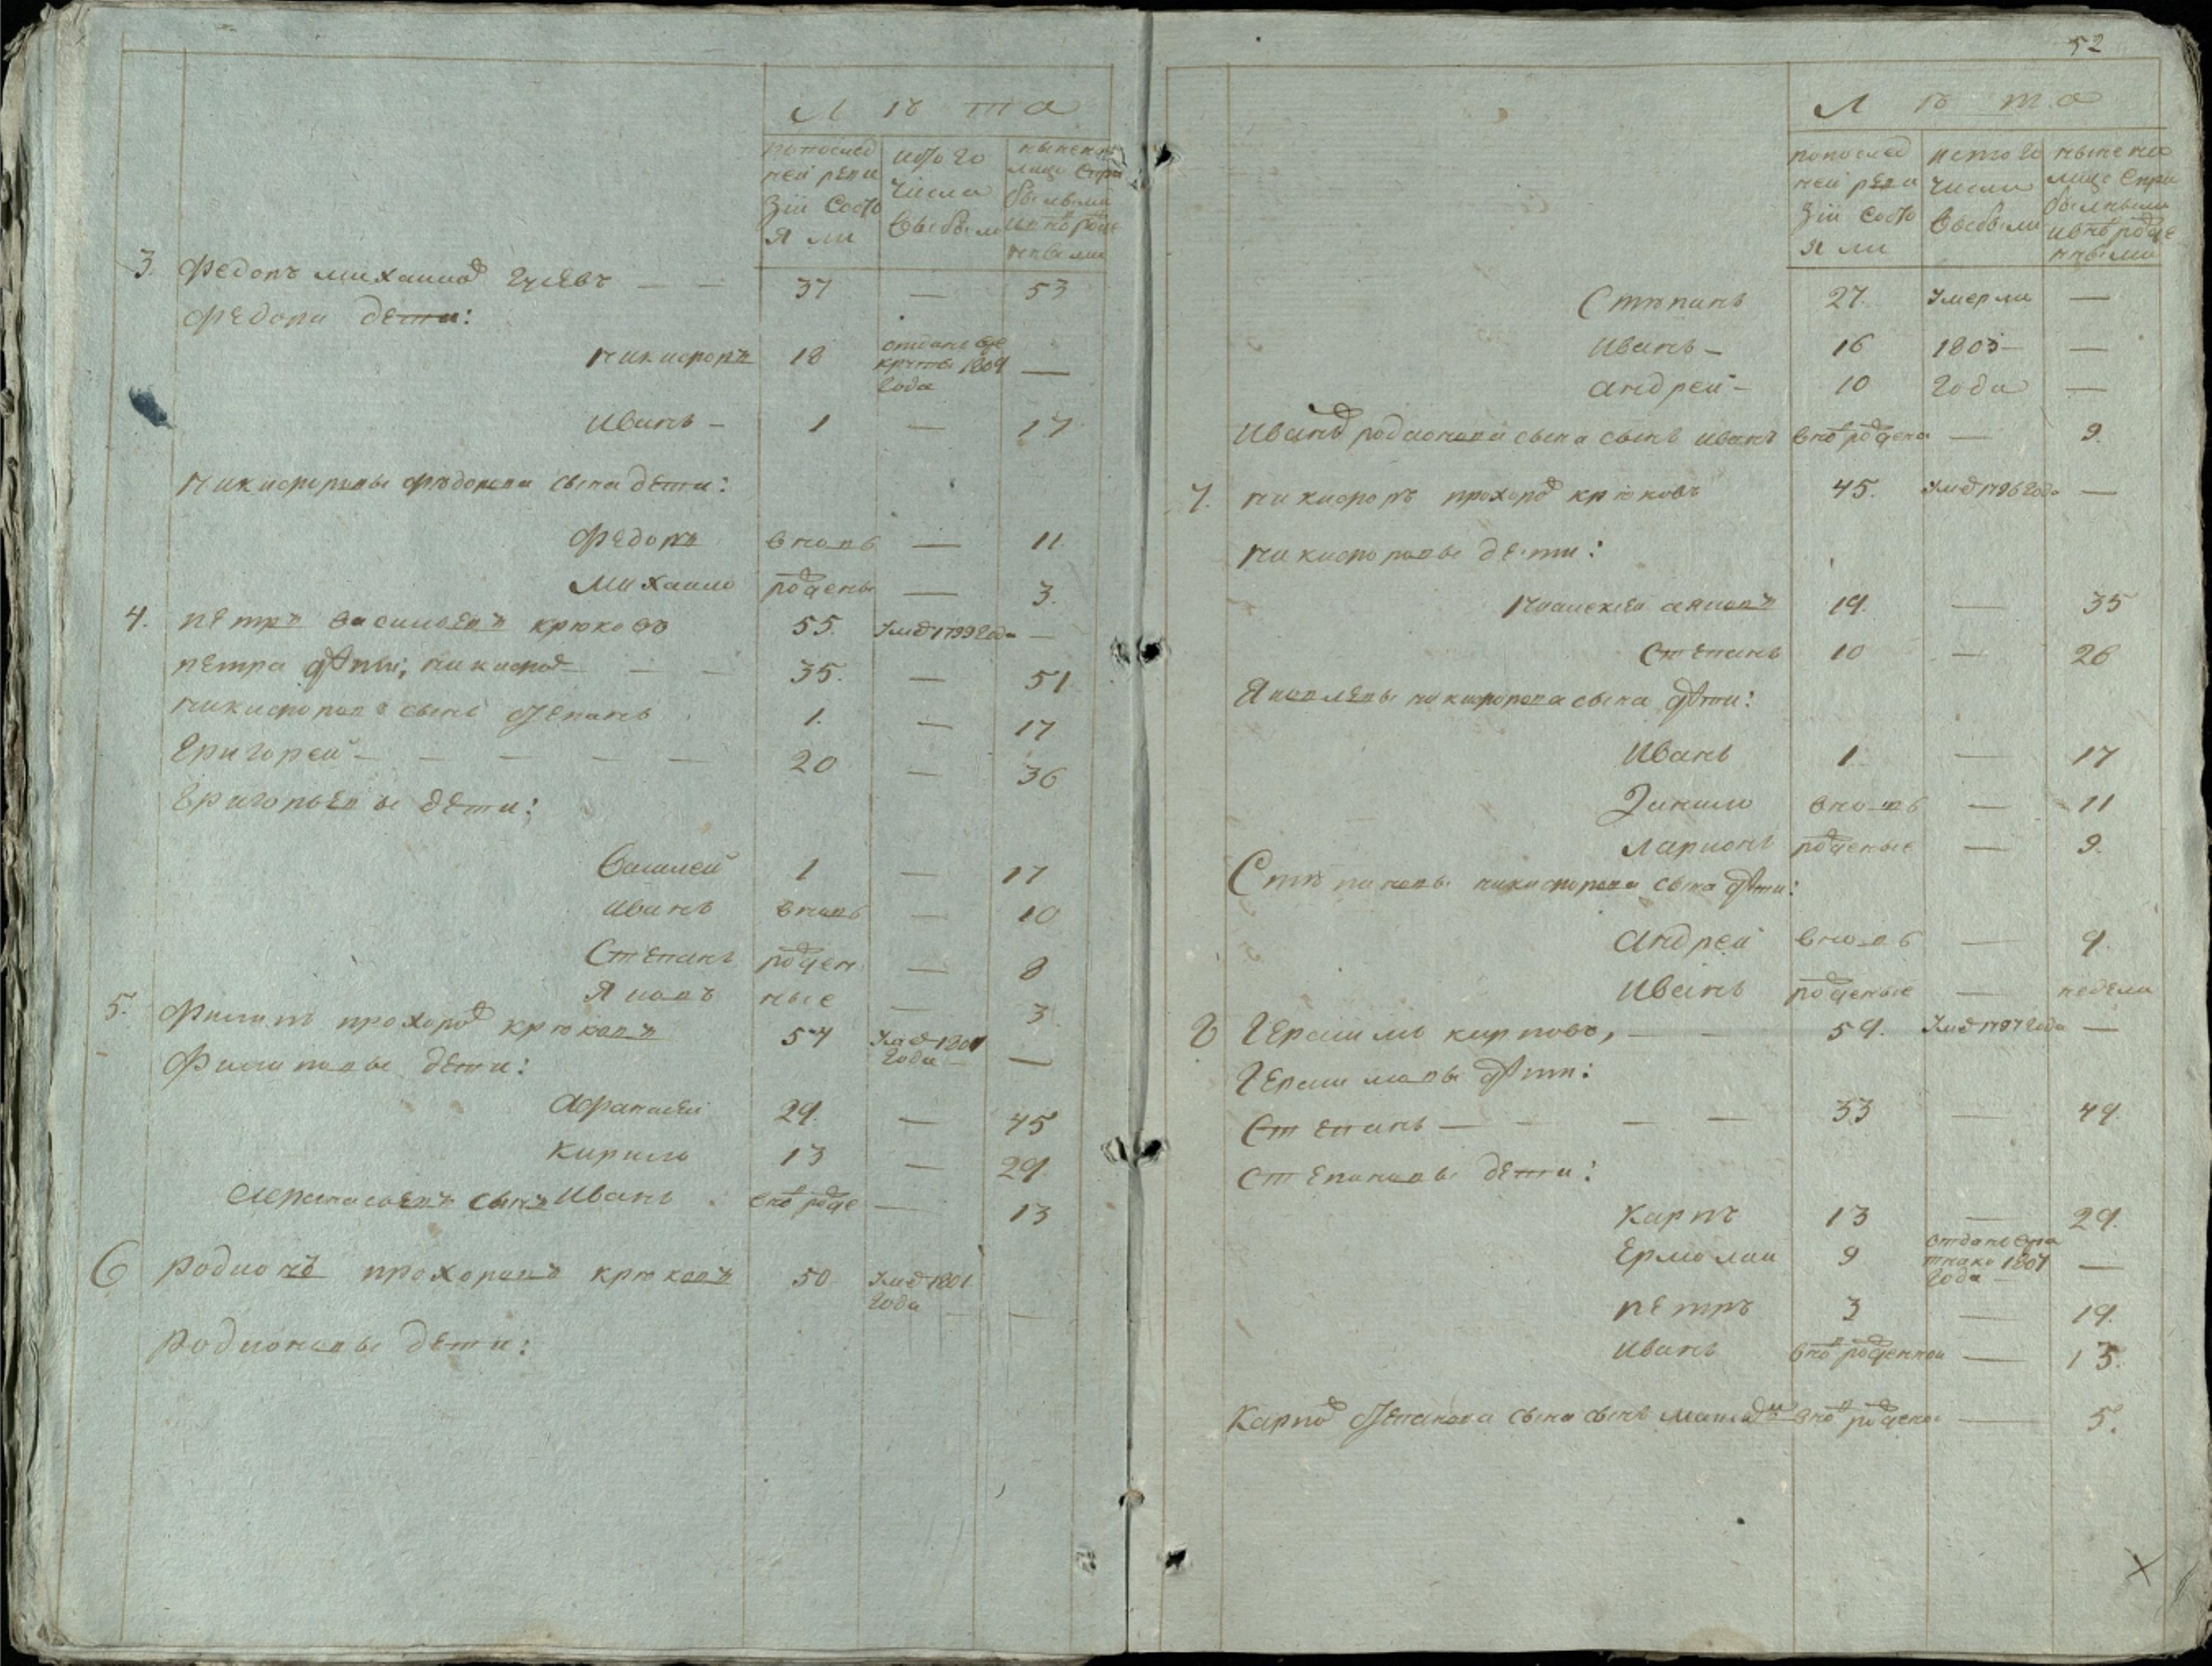 Лѣта
попослед ней реви зіи состо я ли
исто го числа выбыли
ныне на лицо спри былыми ивнᵒ рожде нными
3. Федоръ михаилов гусевъ — — 37 — 53
Федора дети:
никифоръ 18 отданъ вре круты 1809 года —
Иванъ — 1 — 17
никифоровы федорова сына дети:
Федоръ вновь — 11
Михаило рожденые — 3.
4. петръ василевъ крюковъ 55. Умер 1799 года —
петра дети; никифор — — 35. — 51
никифорова сынъ степанъ 1. — 17
Григорей — — — — — 20 — 36
Григорьевы дети:
Василей 1 — 17
иванъ вновь — 10
Степанъ рожден — 8
Яковъ ные — 3
5. Филипъ прохоров крюковъ 57 Умер 1801 года — —
Филиповы дети:
Афанасей 29. — 45
Кирило 13 — 29.
Аефанасьевъ сынъ Иванъ внов рожде — 13
6 родионъ прохоровъ крюковъ 50 Умер 1801 года — —
родионовы дети:
52
Лѣта
попослед ней реви зіи состо я ли
исто го числа выбыли
ныне на лицо спри былными ивнов рожде нными
Степанъ 27. Умерли —
Иванъ — 16 1803 —
андрей — 10 года —
Иванов родионова сына сынъ иванъ внов рождена — 9.
7. никифоръ прохоров крюковъ 45. Умер 1796 года —
никифоровы дети:
яковъ 19. — 35
Степанъ 10 — 26
Яковлевы никифорова сына дети:
Иванъ 1 — 17
Данило вновь — 11
Ларионъ рожденые — 9.
Степановы никифорова сына дети:
Андрей вновь — 9.
Иванъ рожденые — недели
8 Герасимъ карповъ, — — 59. Умер 1797 года —
Герасимовы дети:
Степанъ — — — — 33 — 49.
степановы дети:
Карпъ 13 — 29.
Ермолаи 9 отданъ вра тники 1807 года — —
петръ 3 — 19.
Иванъ внов рожденнои — 13.
Карпов степанова сына сынъ внов рождено — 5.